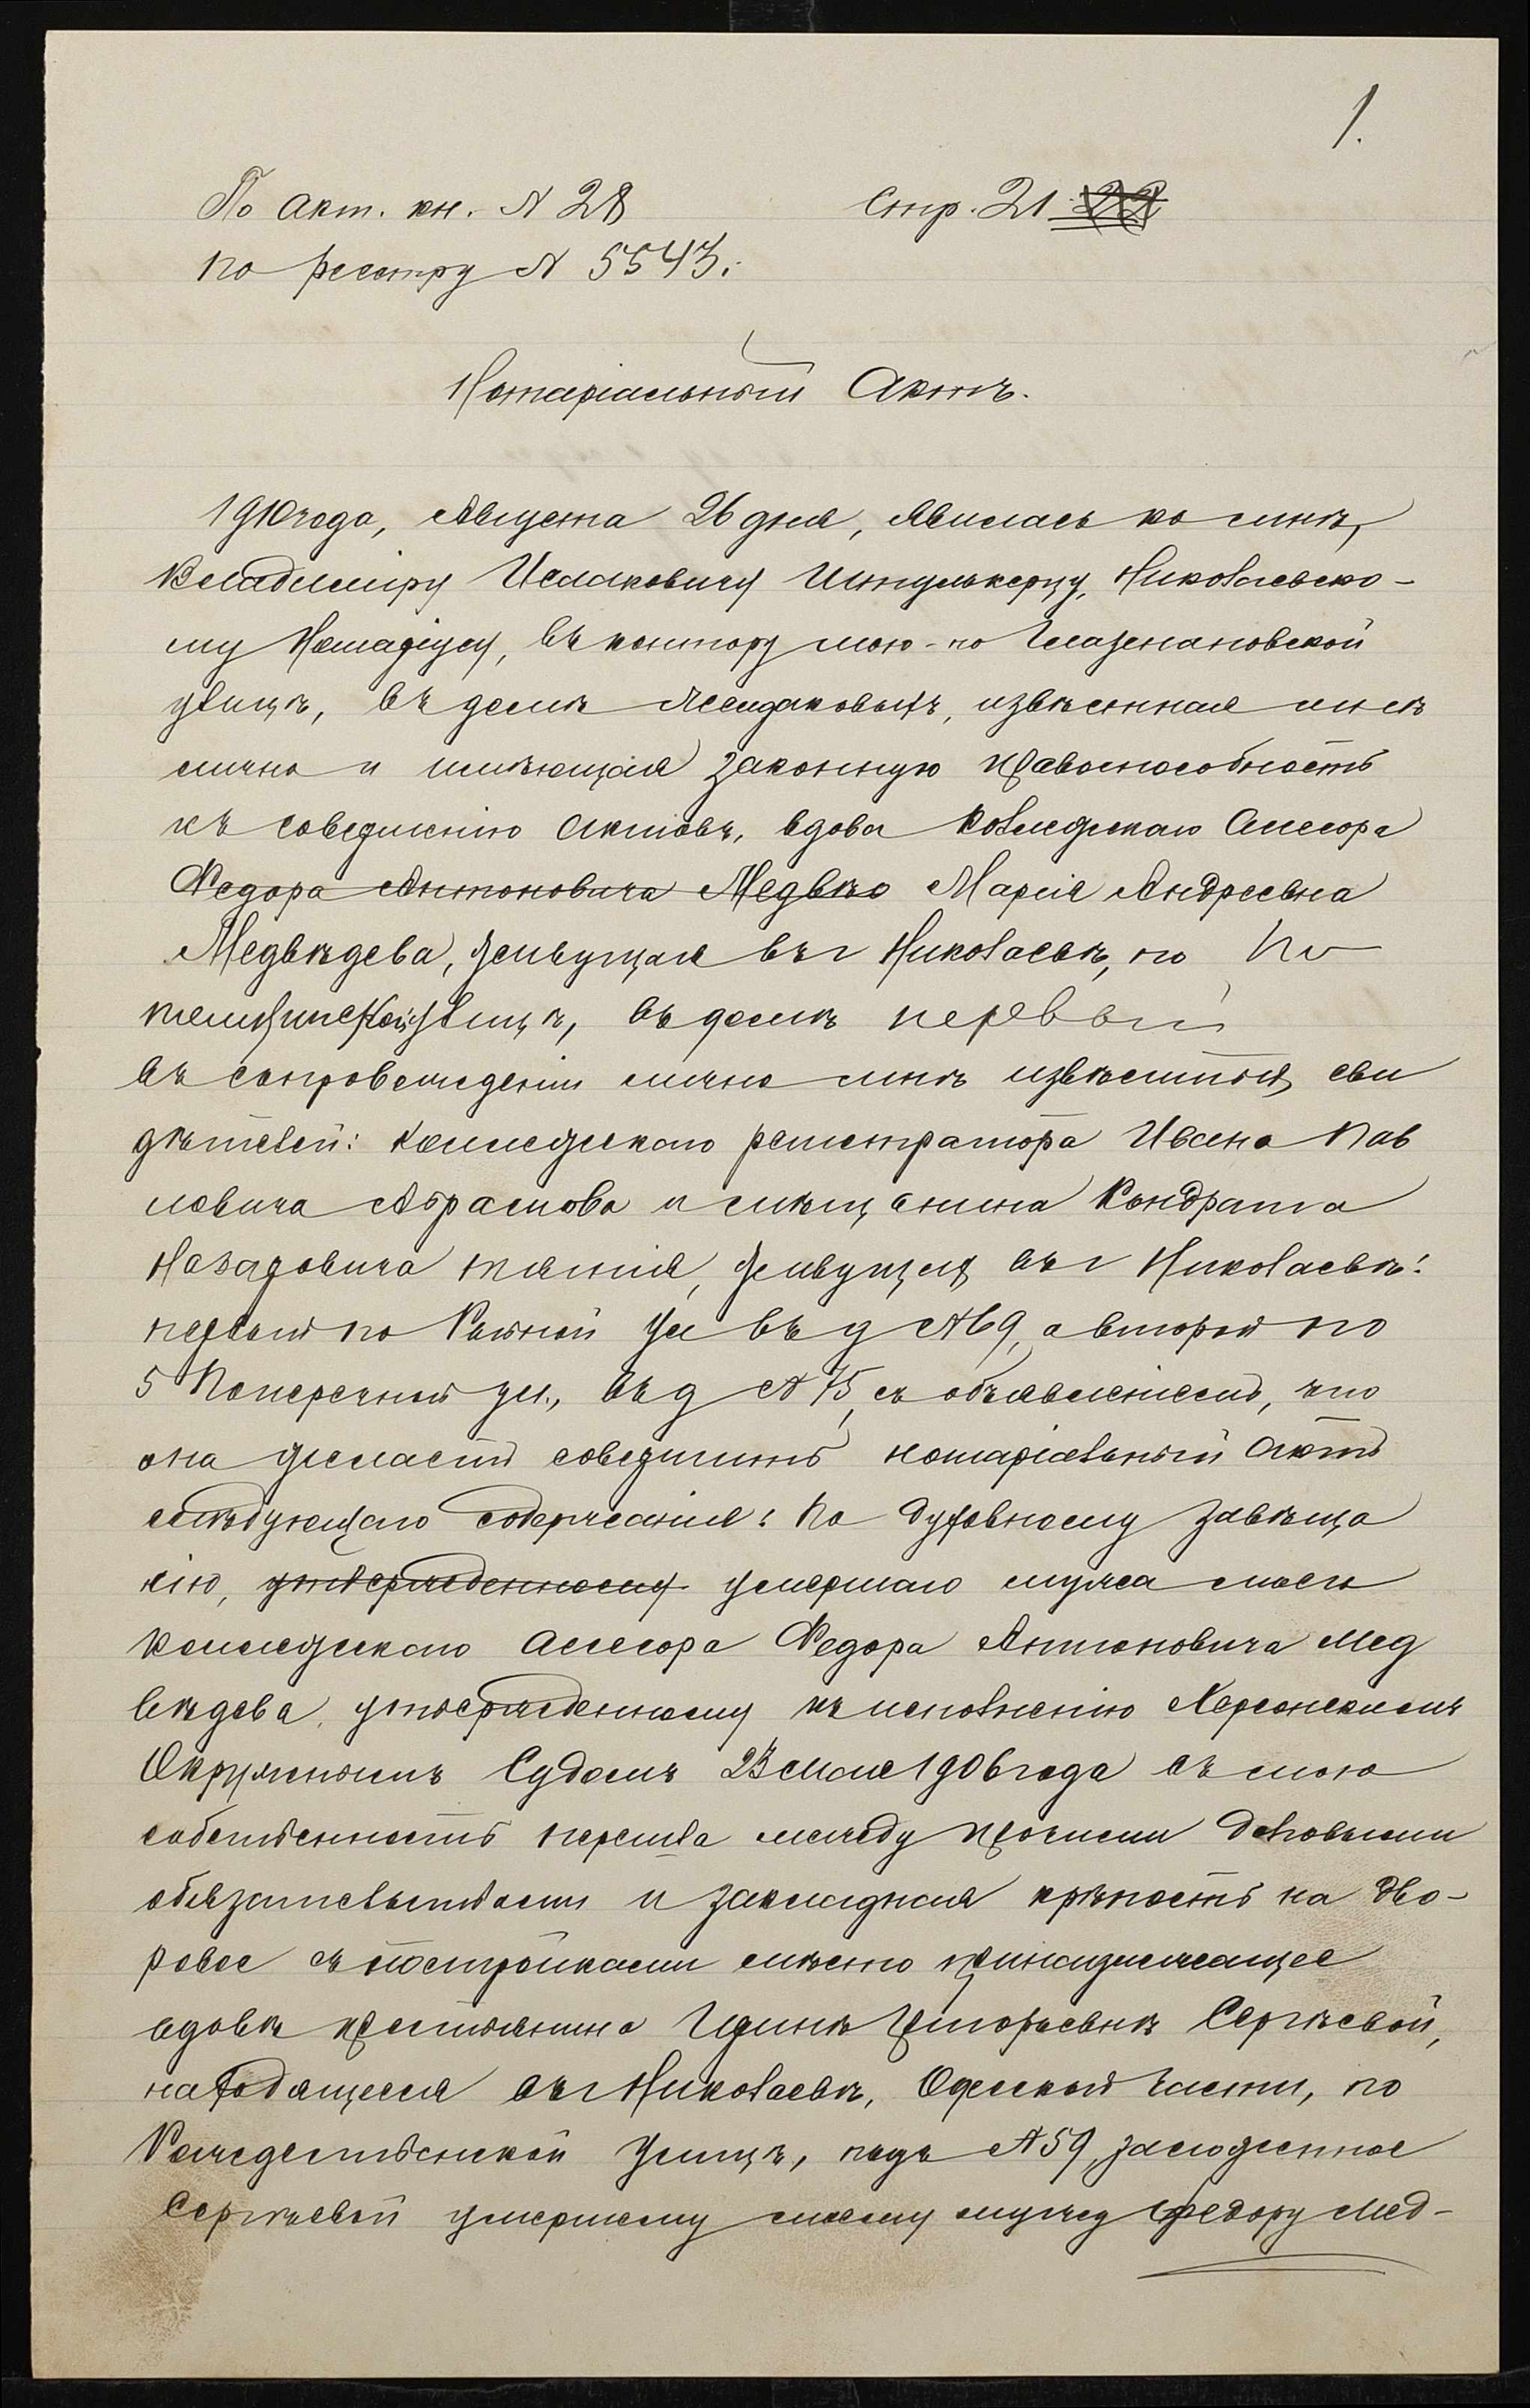 1.
По акт. кн. № 28 Стр. 21 22
по реестру № 5543.
Нотаріальный Актъ.
1910 года, Августа 26 дня, явилась ко мнѣ,
Владиміру Исааковичу Штулькерцу, Николаевско-
му Нотаріусу, въ контору мою - по Глазенаповской
улицѣ, въ домѣ извѣстная мнѣ
лично и имѣющая законную правоспособность
къ совершенію актовъ, вдова Коллежскаго Ассесора
Федора Антоновича Медвѣ Марія Андреевна
Медвѣдева, живущая въ г Николаевѣ, по По
улицѣ, въ домѣ первый
въ сопровожденіи лично мнѣ извѣстныхъ сви
дѣтелей: Коллежскаго регистратора Ивана Пав
ловича Абрамова и мѣщанина Кондрата
Назаровича живущихъ въ г Николаевѣ:
первый по ул въ д № 9, а второй по
5 Поперечной ул., въ д № 75, съ объявленіемъ, что
она желаетъ совершить нотаріальный актъ
слѣдующаго содержанія: По духовному завѣща
нію, утвержденному умершаго мужа моего
Коллежскаго Ассесора Федора Антоновича Мед
вѣдева, утвержденному къ исполненію Херсонскимъ
Окружнымъ Судомъ 23 мая 1906 года въ мою
собственность перешла между прочими долговыми
обязательствами и закладная крѣпость на дво-
ровое съ постройками мѣсто принадлежащее
вдовѣ крестьянина Иринѣ Григорьевнѣ Сергѣевой,
находящееся въ г Николаевѣ, Одесской части, по
Рождественской улицѣ, подъ № 59, заложенное
Сергѣевой умершему моему мужу Федору Мед-